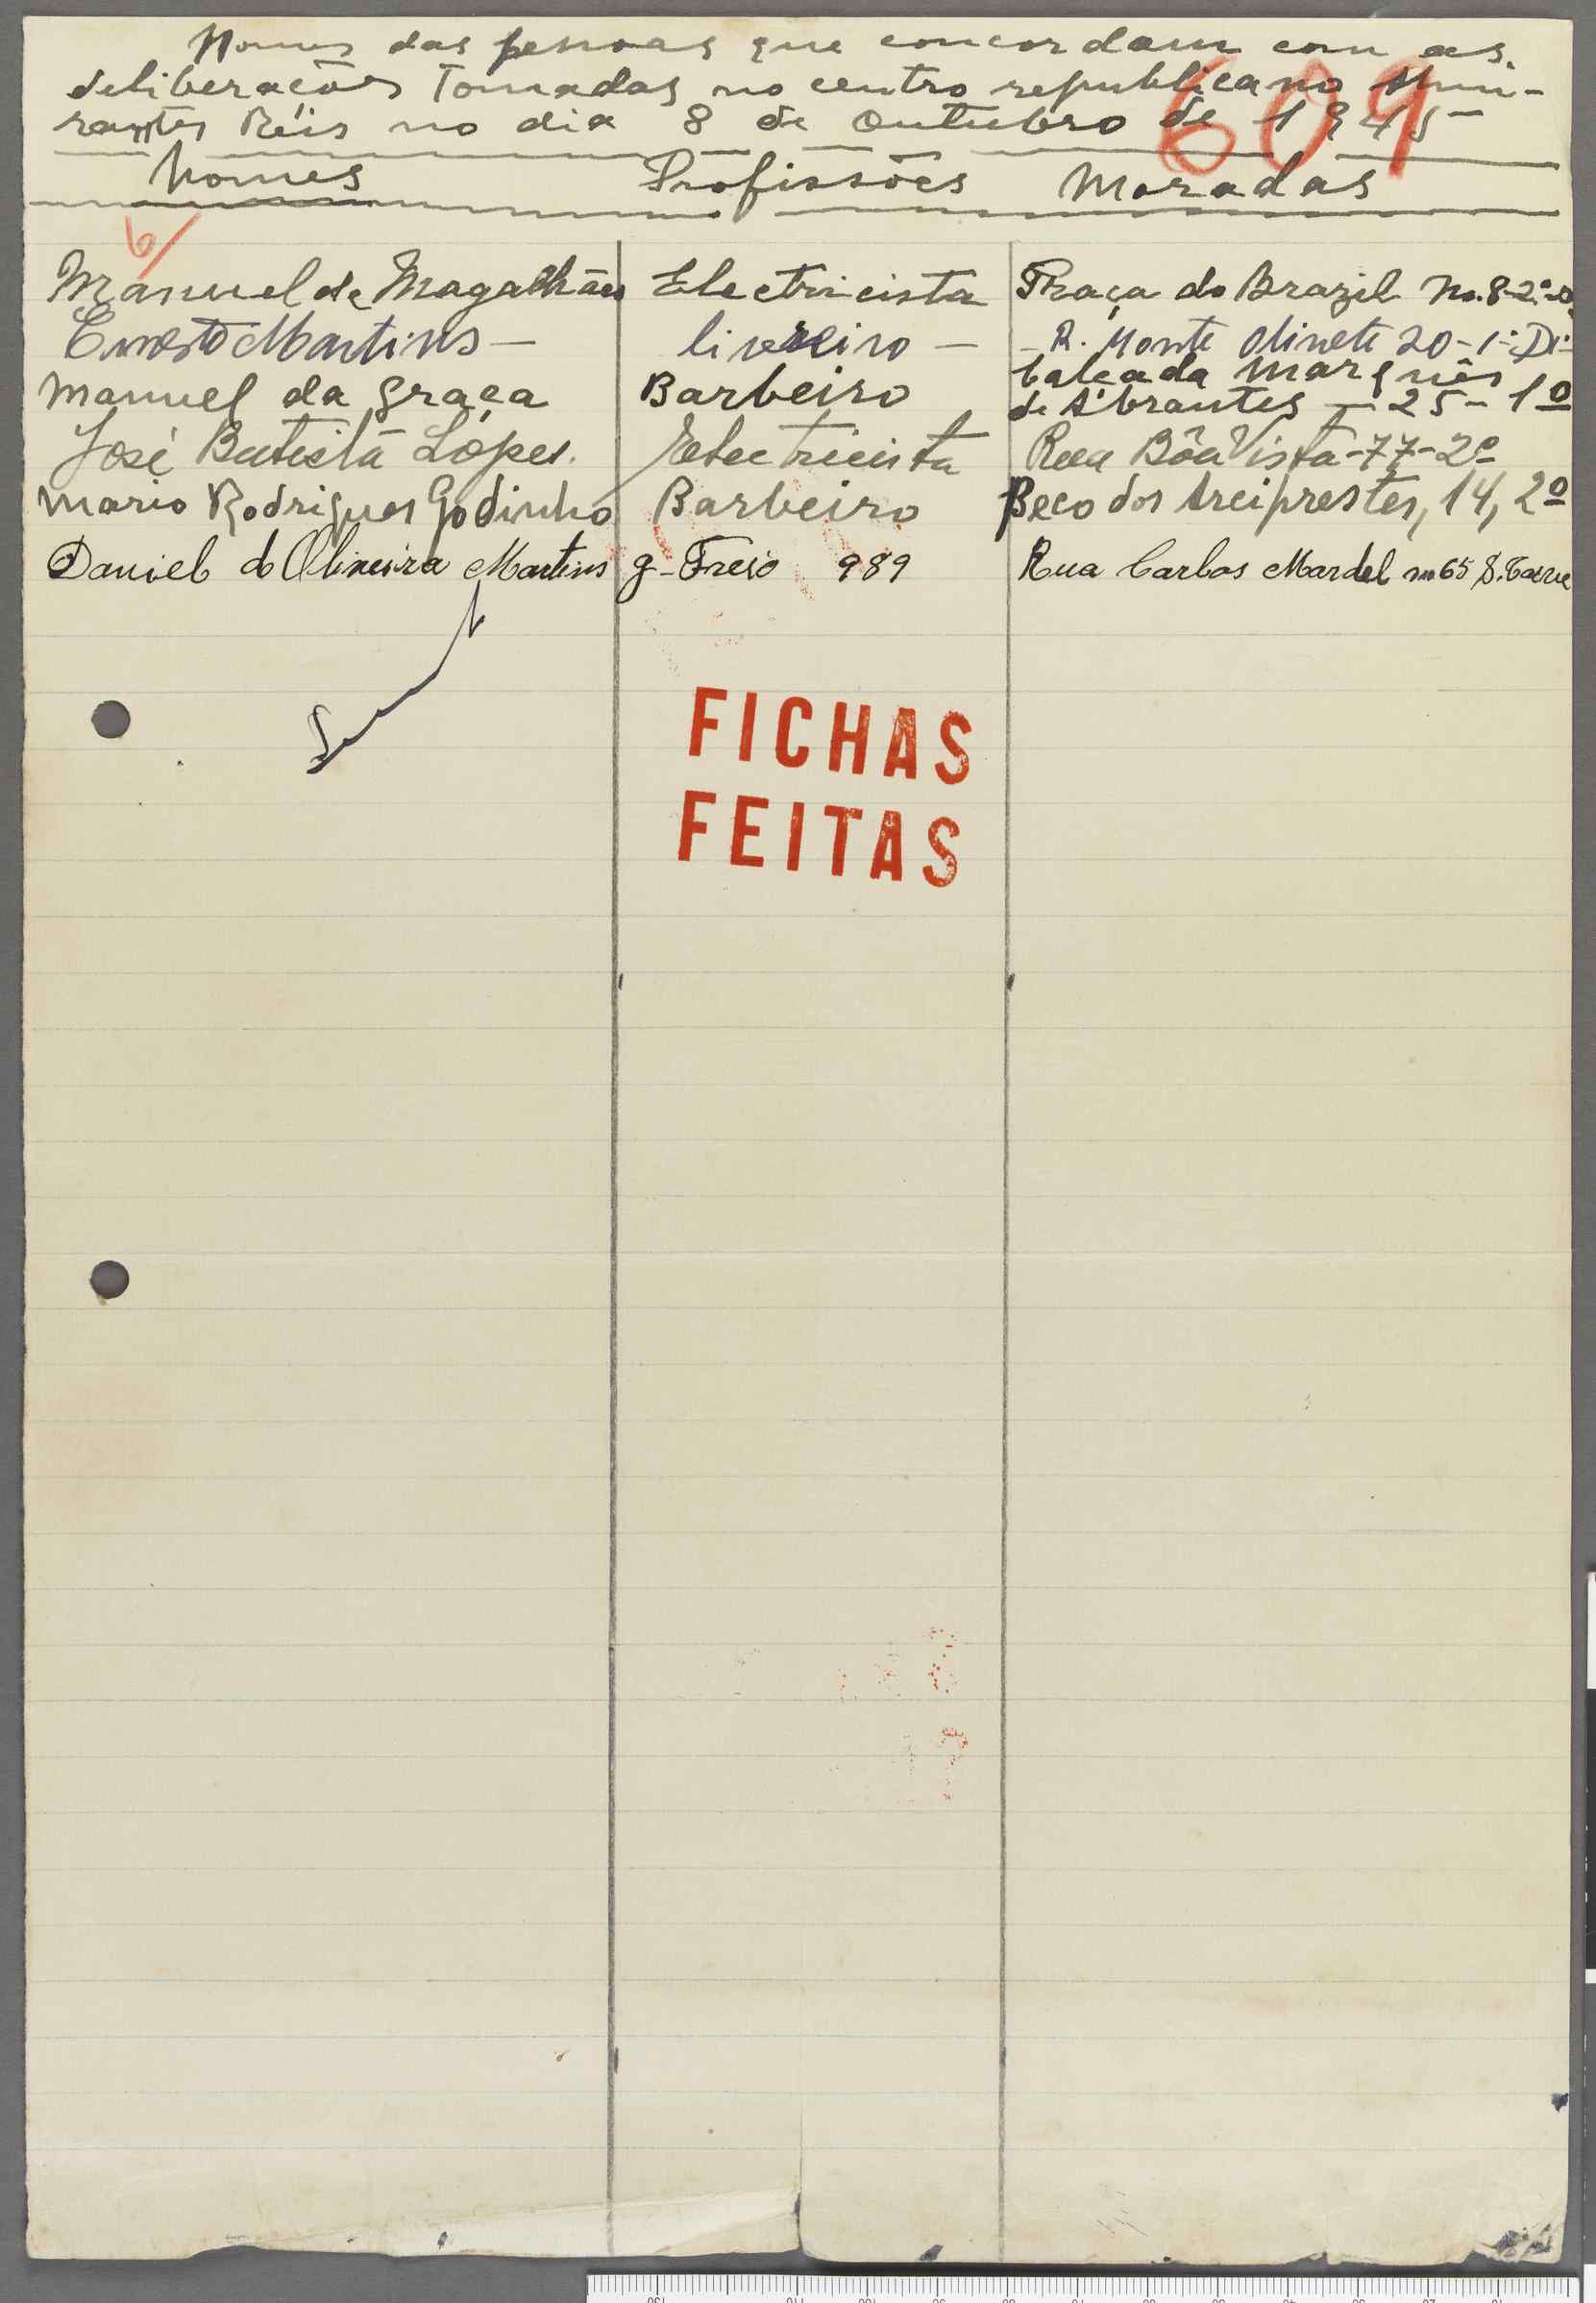 Nomes das pessoas que concordam com as
deliberações Tomadas no centro republicano Almi-
rantes Réis no dia 8 de Outubro de 1945
609
Nomes Profissões Moradas
6/
Manuel de Magalhães Electricista Praça do Brazil No. 8-2º-D
Ernesto Martins — livreiro — R. Monte Olivete 20-1º-Dt
Manuel da Graça Barbeiro Calçada Marquês
de Abrantes — 25 - 1º
José Batista Lopes. Electricista Rua Bôa Vista - 77 - 2º
Mario Rodrigues Godinho Barbeiro Beco dos Areiprestes, 14, 2º
Daniel d Oliveira Martins g-Freio 989 Rua Carlos Mardel nº 65
FICHAS
FEITAS